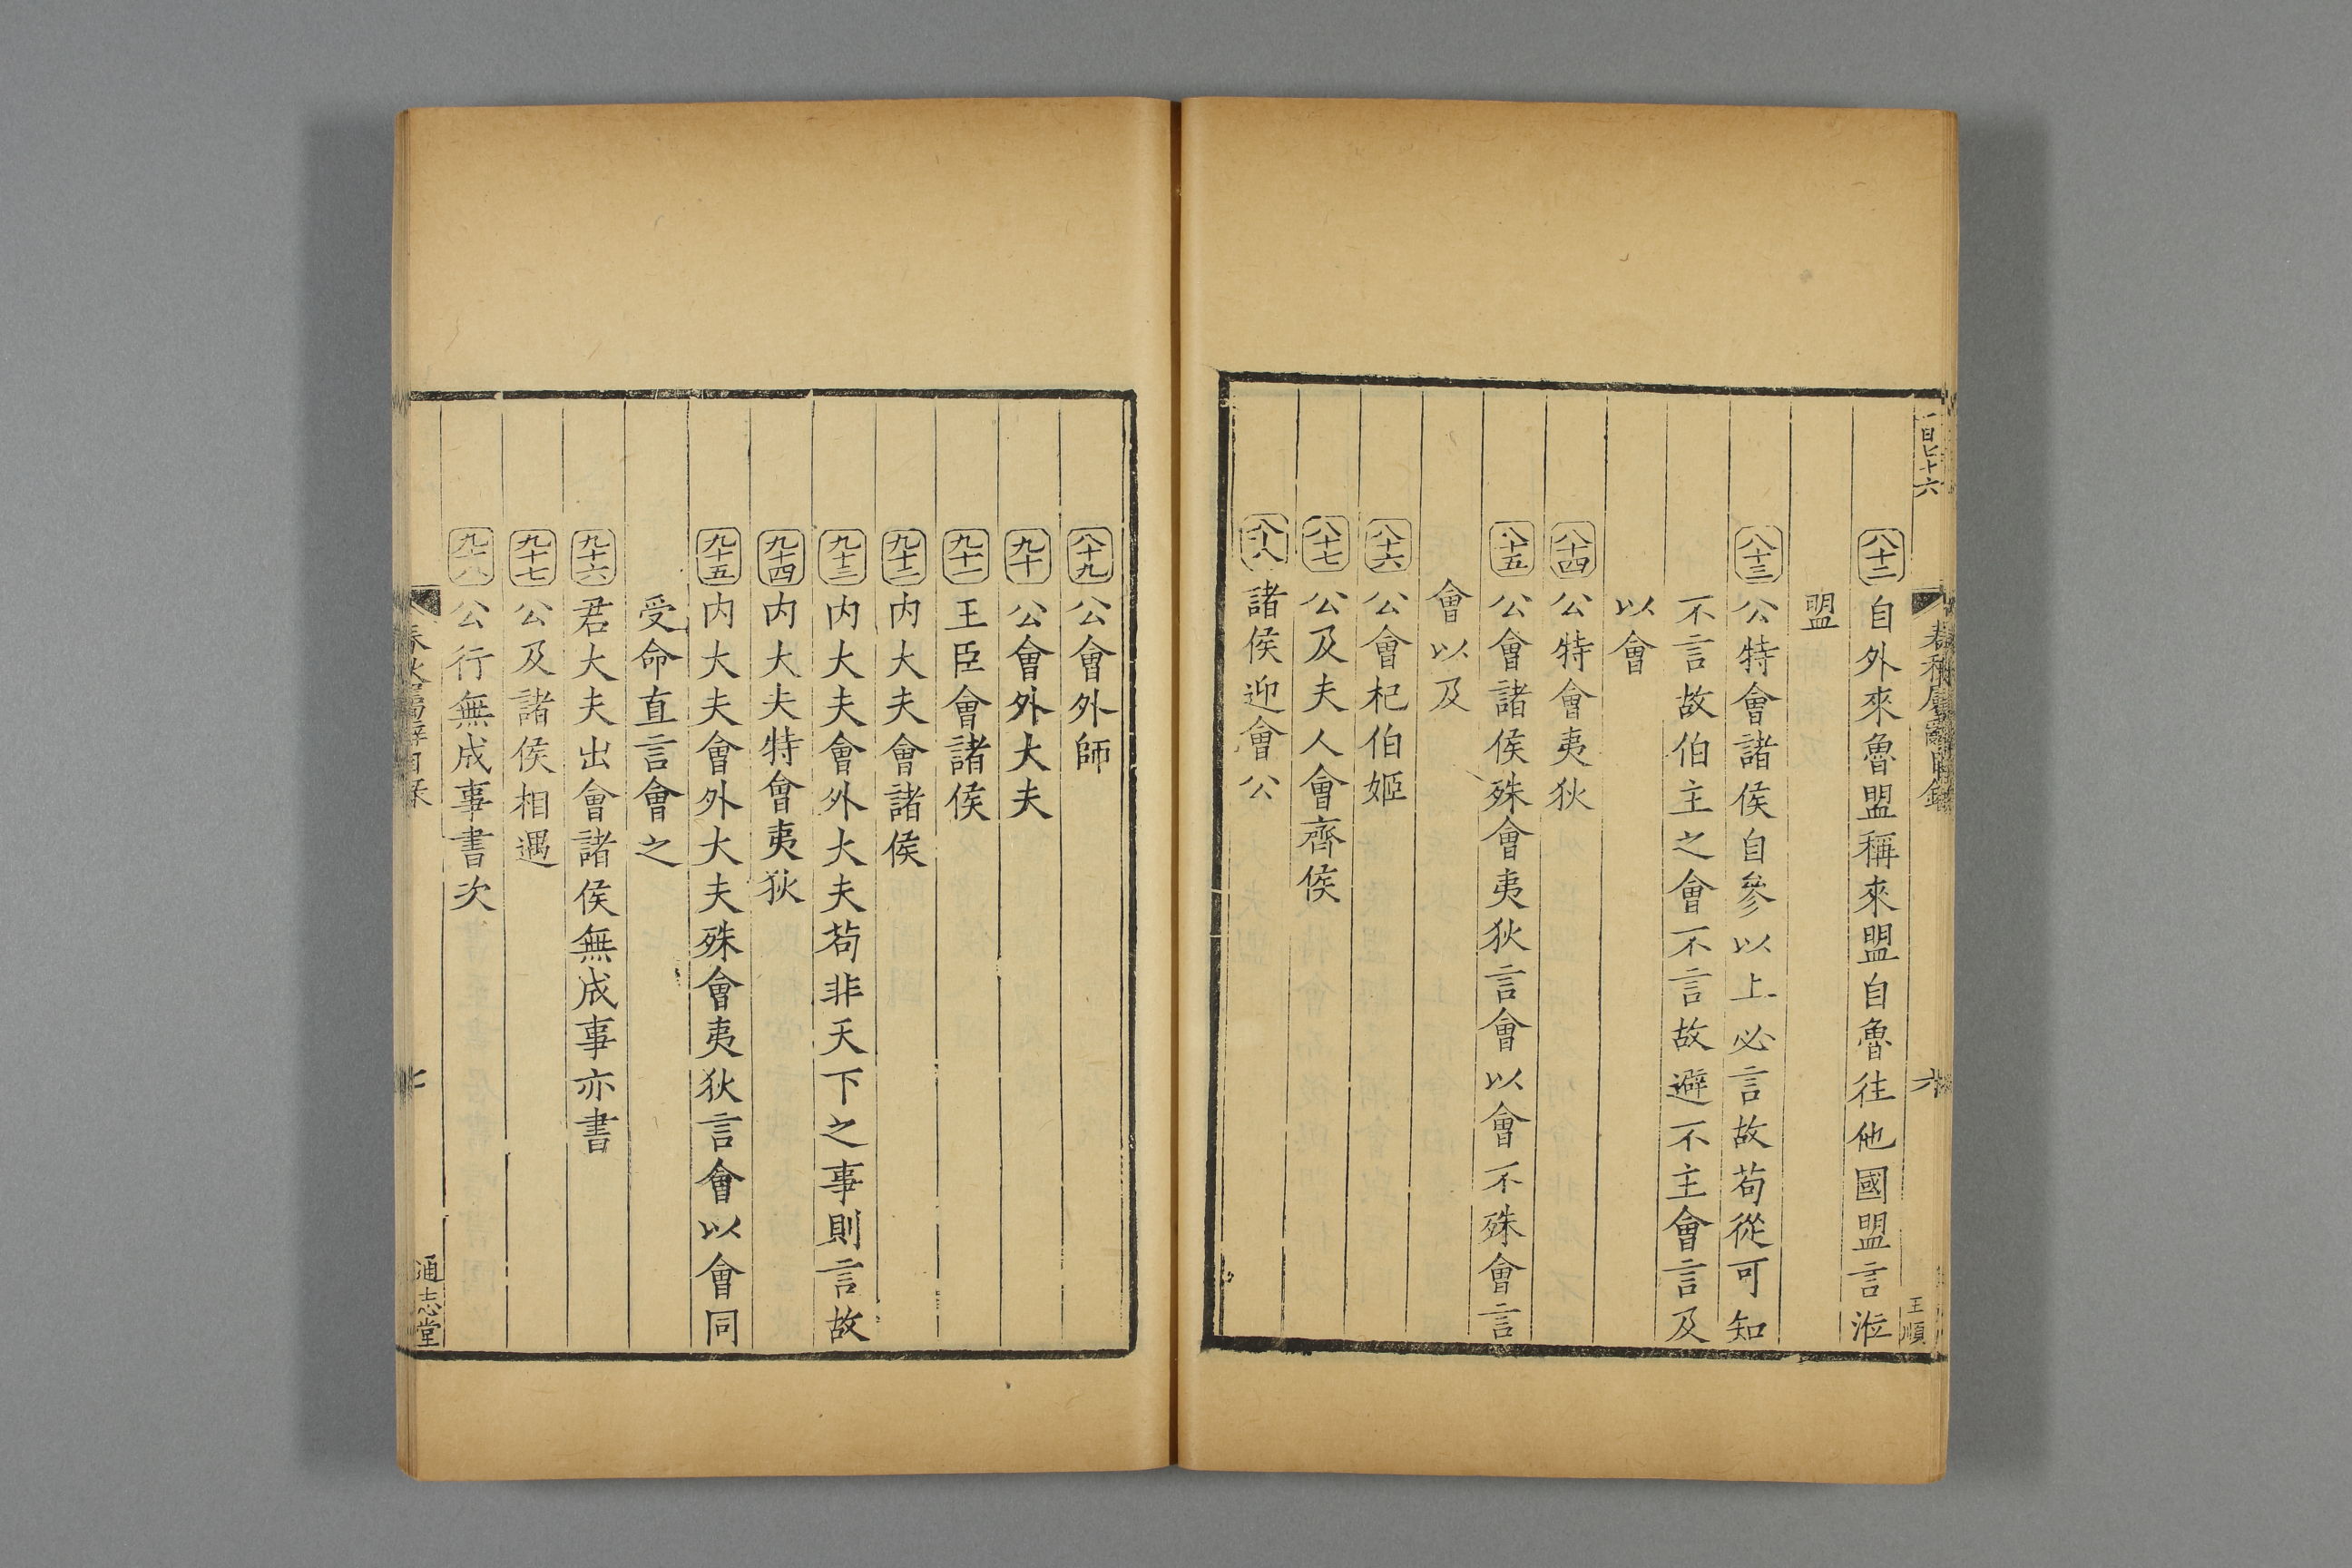 八十二 自外來魯盟稱來盟自魯往他國盟言涖
盟
八十三 公特會諸侯自參以上必言故茍從可知
不言故伯主之會不言故避不主會言及
以會
八十四 公特會夷狄
八十五 公會諸侯殊會夷狄言會以會不殊會言
會以及
八十六 公會杞伯姬
八十七 公及夫人會齊侯
八十八 諸侯迎會公
六
王順
八十九 公會外師
九十 公會外大夫
九十一 王臣會諸侯
九十二 内大夫會諸侯
九十三 内大夫會外大夫茍非天下之事則言故
九十四 内大夫特會夷狄
九十五 内大夫會外大夫殊會夷狄言會以會同
受命直言會之
九十六 君大夫出會諸侯無成事亦書
九十七 公及諸侯相遇
九十八 公行無成事書次
通志堂